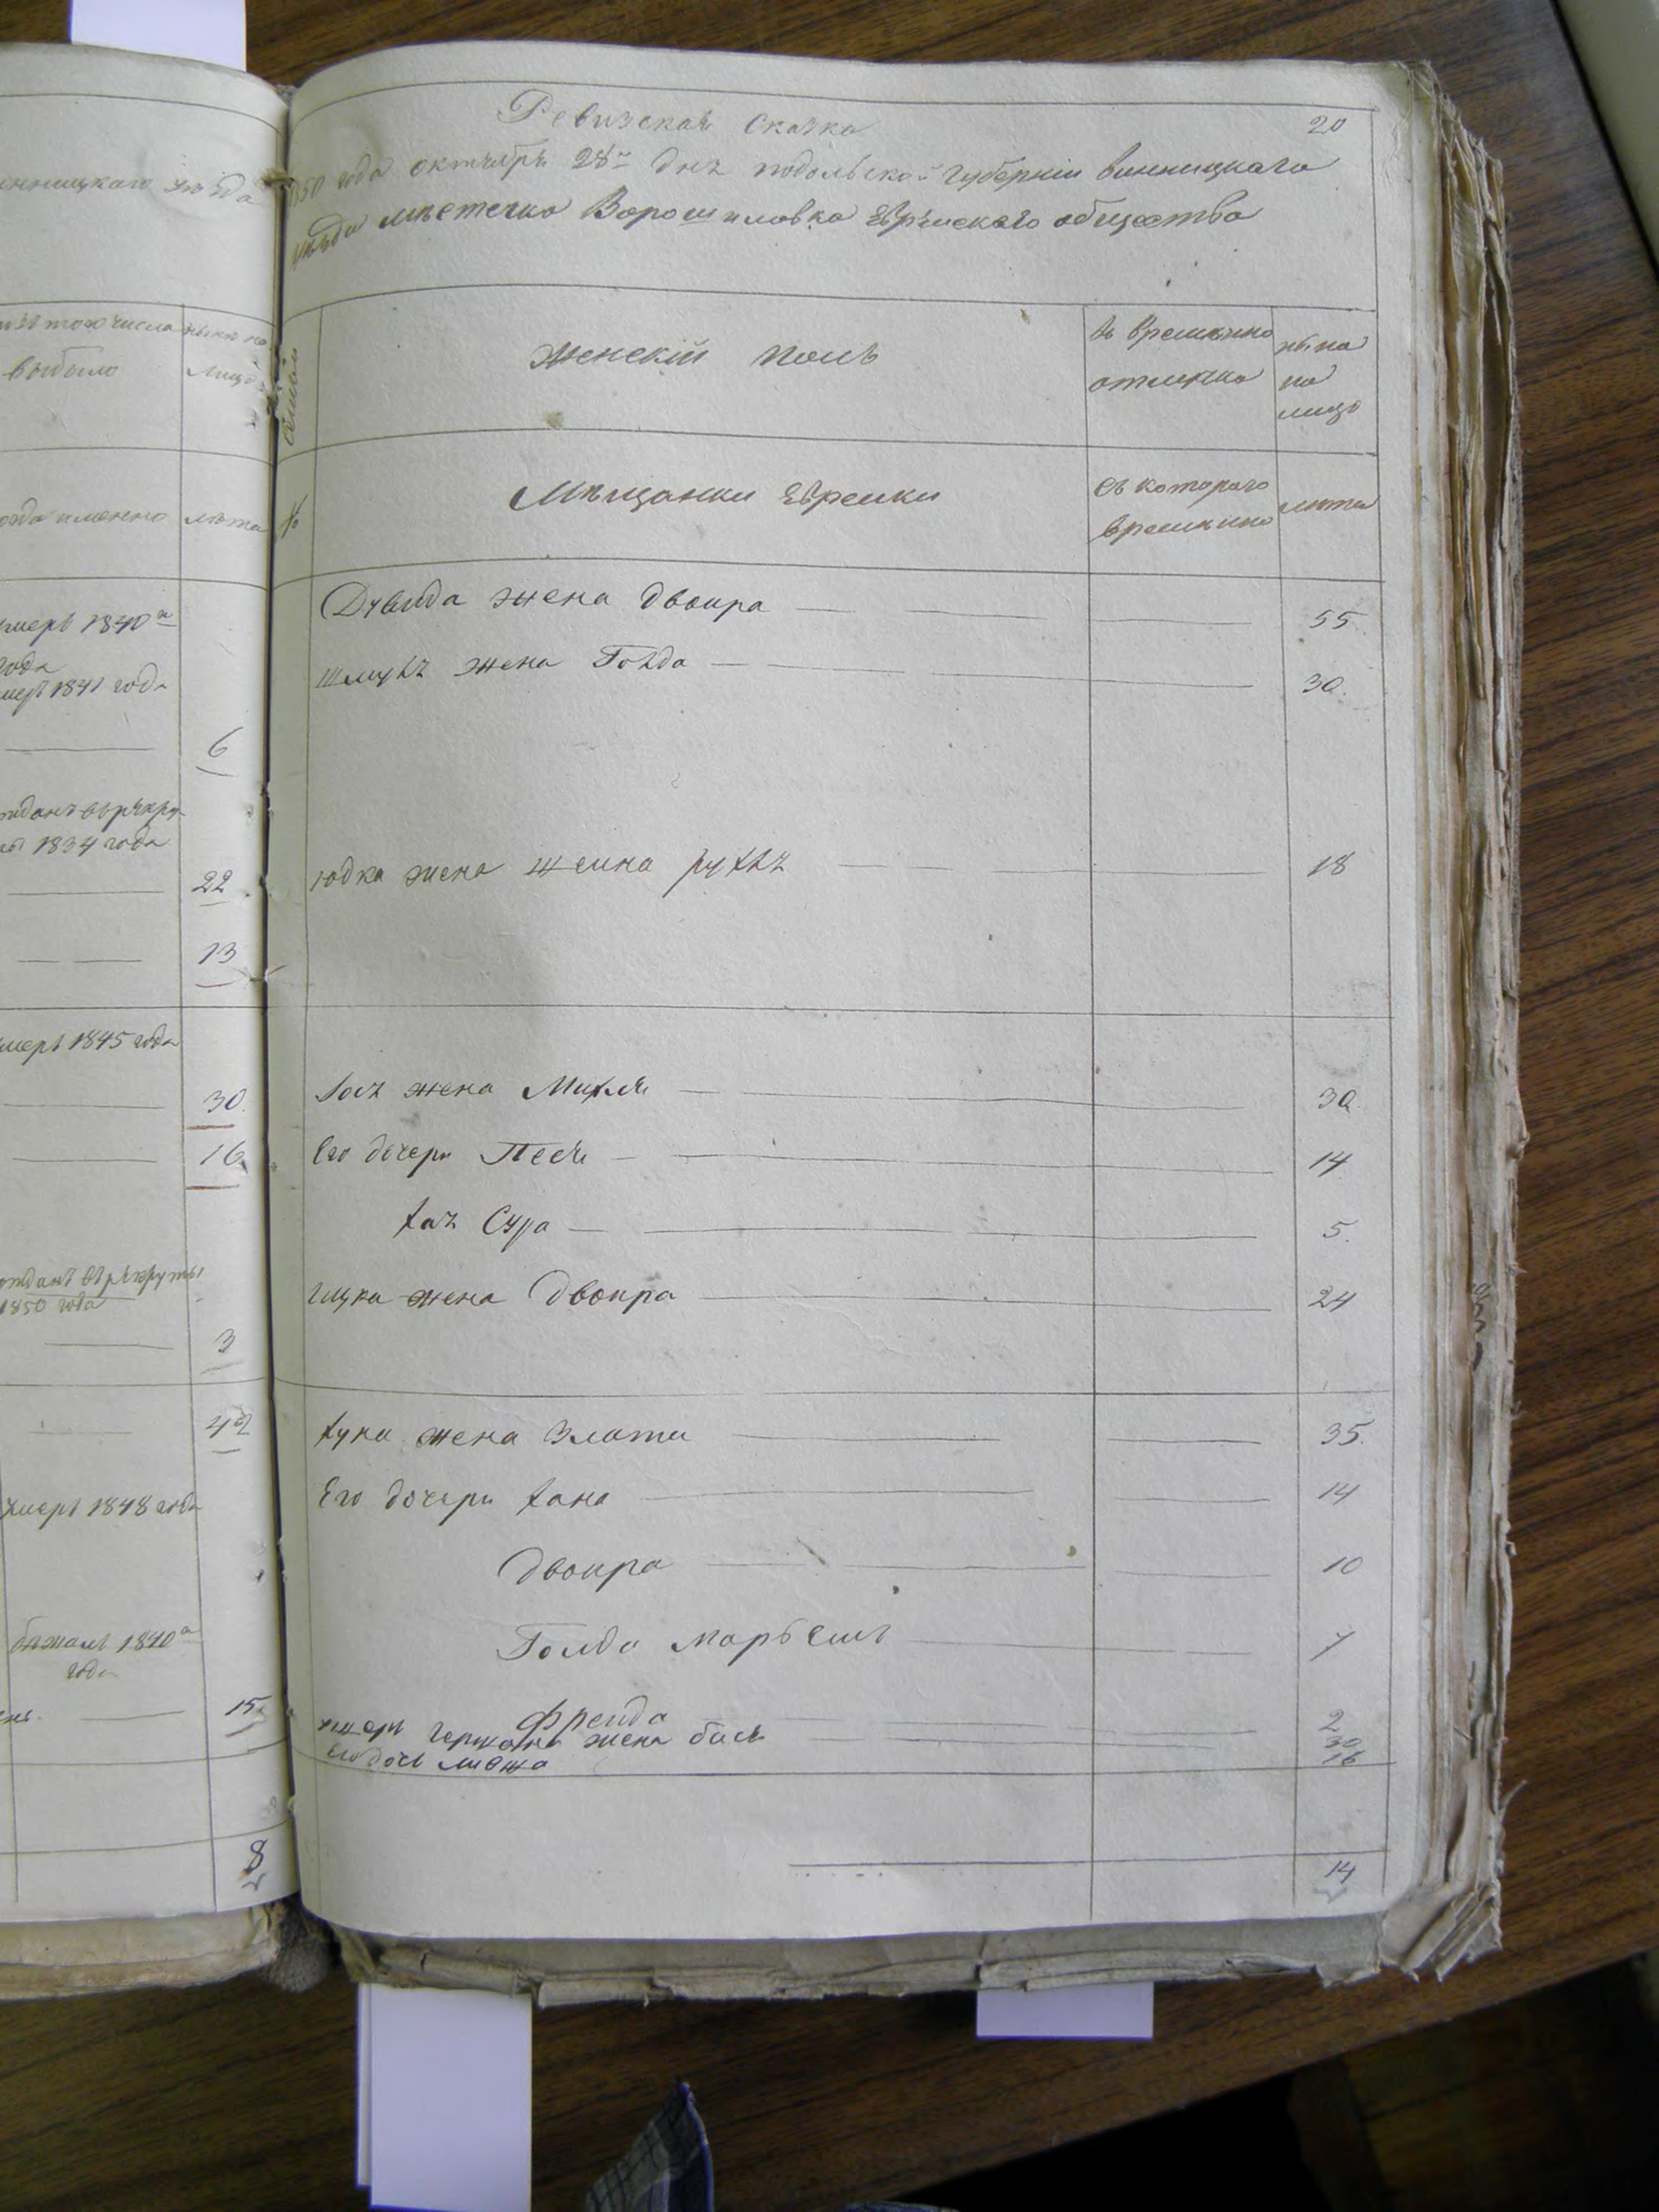 уѣзда
изъ того числа
выбыло
лицо
когда именно
лѣта
умеръ 1840 а
года
умеръ 1841 года
6
1834 года
22
13
умеръ 1845 года
30
16
отданъ въ рекруты
1850 года
3
42
умеръ 1848 года
бежалъ 1840 а
года
15
8
Ревизская Сказка
20
1850 года октября 28 дня подольской губерніи винницкаго
уѣзда мѣстечка Ворошиловка Еврейскаго общества
Семьи
женскій полъ
во временно
отлучке
ныне
на
лицо
№
Мѣщанки Еврейки
съ котораго
времени
лѣта
Дувида жена двойра 55
жена Голда 30
юдка жена шейна рухля 18
жена Михля 30
Его дочери Песя 14
хая Сура 5
ицка жена Двойра 24
жена Злата 35
Его дочери хана 14
Двойра 10
Голда Марьемъ 7
Фрейда 2
жена бася 30
его дочь 16
14